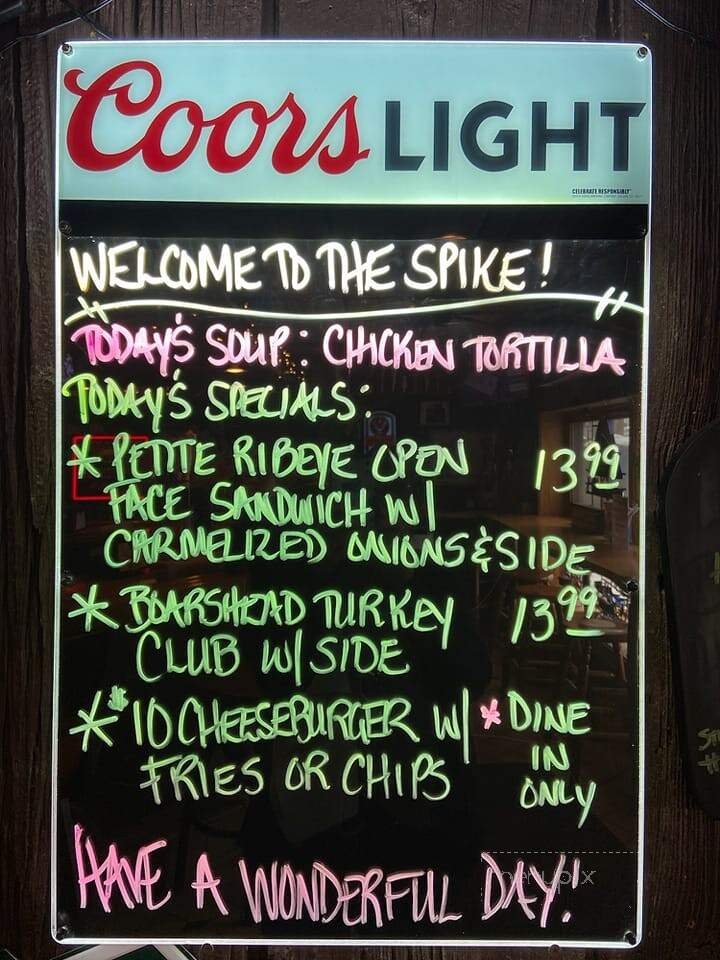 Coors LIGHT
CELEBRATE RESPONSIBLY
WELCOME TO THE SPIKE!
TODAY'S SOUP: CHICKEN TORTILLA
TODAY'S SPECIALS:
* PETITE RIBEYE OPEN 13.99
FACE SANDWICH W/
CARMELIZED ONIONS & SIDE
* BOARSHEAD TURKEY 13.99
CLUB W/ SIDE
* $10 CHEESEBURGER W/ * DINE
FRIES OR CHIPS IN
ONLY
HAVE A WONDERFUL DAY!
menupix